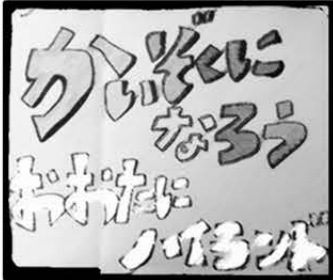 かいぞくに
なろう
おおたに
ハイランド